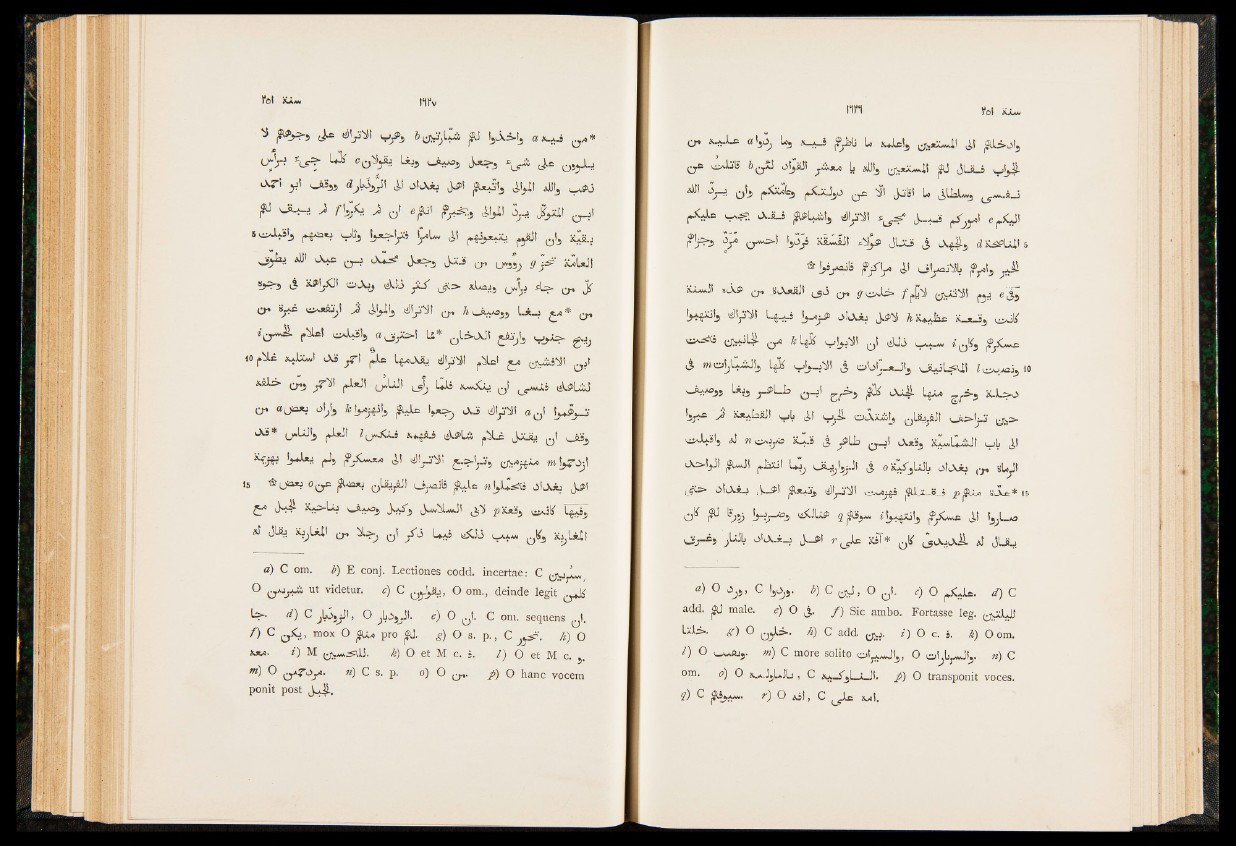 ١٦٢٦ سنة ٢٥١
وادخلهم الى المستعين واعلمه ما ناظرهم فيه وما ردّوا a عليه من
الجواب فقال لهم المستعين والله يا معشر القوّاد لئن b قاتلت عن
نفسى وسلطانى ما اقاتل الّا عن دولتكم وعامّتكم وان يردّ الله
اليكم c اموركم قبل مجىء الاتراك واشباههم فقد يجب عليكم
5 المناصحة d والجهد فى قتال هؤلاء الفسقة فردّوا احسن مردّ وجزاهم
الخير وامرهم بالانصراف الى مراكزهم فانصرفوا ۞
وفى e يوم الاثنين لايّام f خلت g من ذى القعدة من هذه السنة
كانت وقعة عظيمة h لاهل بغداد هزموا فيها الاتراك وانتهبوا
عسكرهم وكان i سبب ذلك ان الابواب كلها k من الجانبين فتحت
10 ونصبت l المجانيق والعرّادات فى الابواب كلها والشبّارات m فى
دجلة وخرج منها الجند كلهم وخرج ابن طاهر وبغا ووصيف
حين تزاحف الفريقان واشتدّت الحرب الى باب القطيعة ثم عبروا
الى باب الشماسية وقعد ابن طاهر فى قبّة ضربت n له واقبلت
الرماة من بغداد بالناوكية o فى الزواريق ربّما انتظم السهم الواحد
15 *عدّة منهم p فيقتلهم فهزمت الاتراك وتبعهم اهل بغداد حتى
صاروا الى عسكرهم وانتهبوا سوقهم q هنالك وضربوا زورقا لهم كان
يقال له الحديدى كان *آفة على r اهل بغداد بالنار وغرق
a) O ورد, C وردوا. b) C لين, O ان. c) O عليكم. d) C
add. لهم male. e) O فى. f) Sic ambo. Fortasse leg. لليلتين
خلتا. g) O خلون. h) C add. بين. i) O c. ف. k) O om.
l) O ونصب. m) C more solito والسيرات, O والسربارات. n) C
om. o) O, C. p) O transponit voces.
q) C سيوفهم. r) O افه, C امه على.
سنة ٢٥١ ١٦٢٧
*من فيه a واخذوا لهم شبّارتين b وهرب الاتراك على وجوههم لا
يلوون على شىء وجعل وصيف وبغا يقولان c كلّما جىء برأس
ذهب والله الموالى واتّبعهم اهل بغداد الى الروذبار d ووقف ابو احمد
ابن المتوكّل يردّ الموالى ويخبرهم انهم e ان لم يكرّوا f لم يبق لهم
5 بقيّة وان القوم يتبعونهم الى سامرّا فتراجعوا وثاب بعضهم واقبلت
العامّة تحزّ g رؤوس من قتل وجعل محمّد بن عبد الله يطوّق
كلّ من جاء برأس ويصله حتى كثر ذلك وبدت الكراهة فى وجوه
من *مع بغا ووصيف h من الاتراك والموالى ثم ارتفعت غبرة من
ريح جنوب وارتفع الدخان *ممّا احترق a واقبلت اعلام الحسن i
10 ابن الافشين مع اعلام الاتراك يقدمها علم احمر قد استلبه غلام
لشاهك فنسى ان ينكسه فلمّا رأى الناس العلم الاحمر ومن خلفه
توهّموا ان a الاتراك قد رجعوا عليهم وانهزموا k واراد بعض a من
وقف ان يقتل غلام شاهك ففهمه فنكس l العلم والناس *قد
ازدحموا m منهزمين وتراجع الاتراك الى معسكرهم ولم يعلموا بهزيمة
15 اهل بغداد فتحمّلوا n عليهم فانصرف الفريقان بعضهم عن o بعض ۞
وفيها كانت وقعة p لابى السلاسل وكيل وصيف بناحية الجبل مع
المغاربة وكان سبب ذلك فيما ذكر ان رجلا من المغاربة يقال له
a) C om. b) E conj. Lectiones codd. incertae: C,
O ut videtur. c) C يقولون, O om., deinde legit كلمن
جا. d) C, O. e) O ان. C om. sequens ان.
f) C يكن, mox O منهم pro لهم. g) O s. p., C تحوز. h) O
معه. i) M للحسين. k) O et M c. ف. l) O et M c. و.
m) O مزدحمين. n) C s. p. o) O من. p) O hanc vocem
ponit post الجبل.